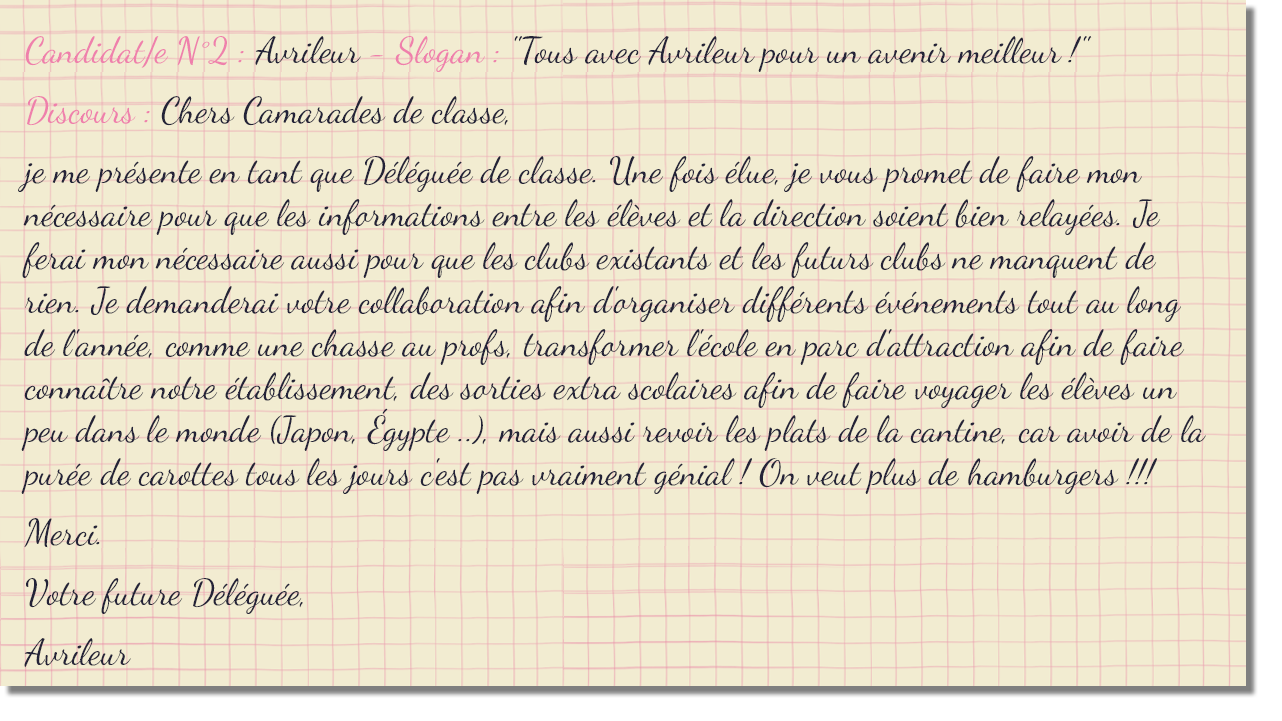 Candidat/e N°2 : Avrileur - Slogan : "Tous avec Avrileur pour un avenir meilleur !"
Discours : Chers Camarades de classe,
je me présente en tant que Déléguée de classe. Une fois élue, je vous promet de faire mon
nécessaire pour que les informations entre les élèves et la direction soient bien relayées. Je
ferai mon nécessaire aussi pour que les clubs existants et les futurs clubs ne manquent de
rien. Je demanderai votre collaboration afin d'organiser différents événements tout au long
de l'année, comme une chasse au profs, transformer l'école en parc d'attraction afin de faire
connaître notre établissement, des sorties extra scolaires afin de faire voyager les élèves un
peu dans le monde (Japon, Égypte ..), mais aussi revoir les plats de la cantine, car avoir de la
purée de carottes tous les jours c'est pas vraiment génial ! On veut plus de hamburgers !!!
Merci.
Votre future Déléguée,
Avrileur